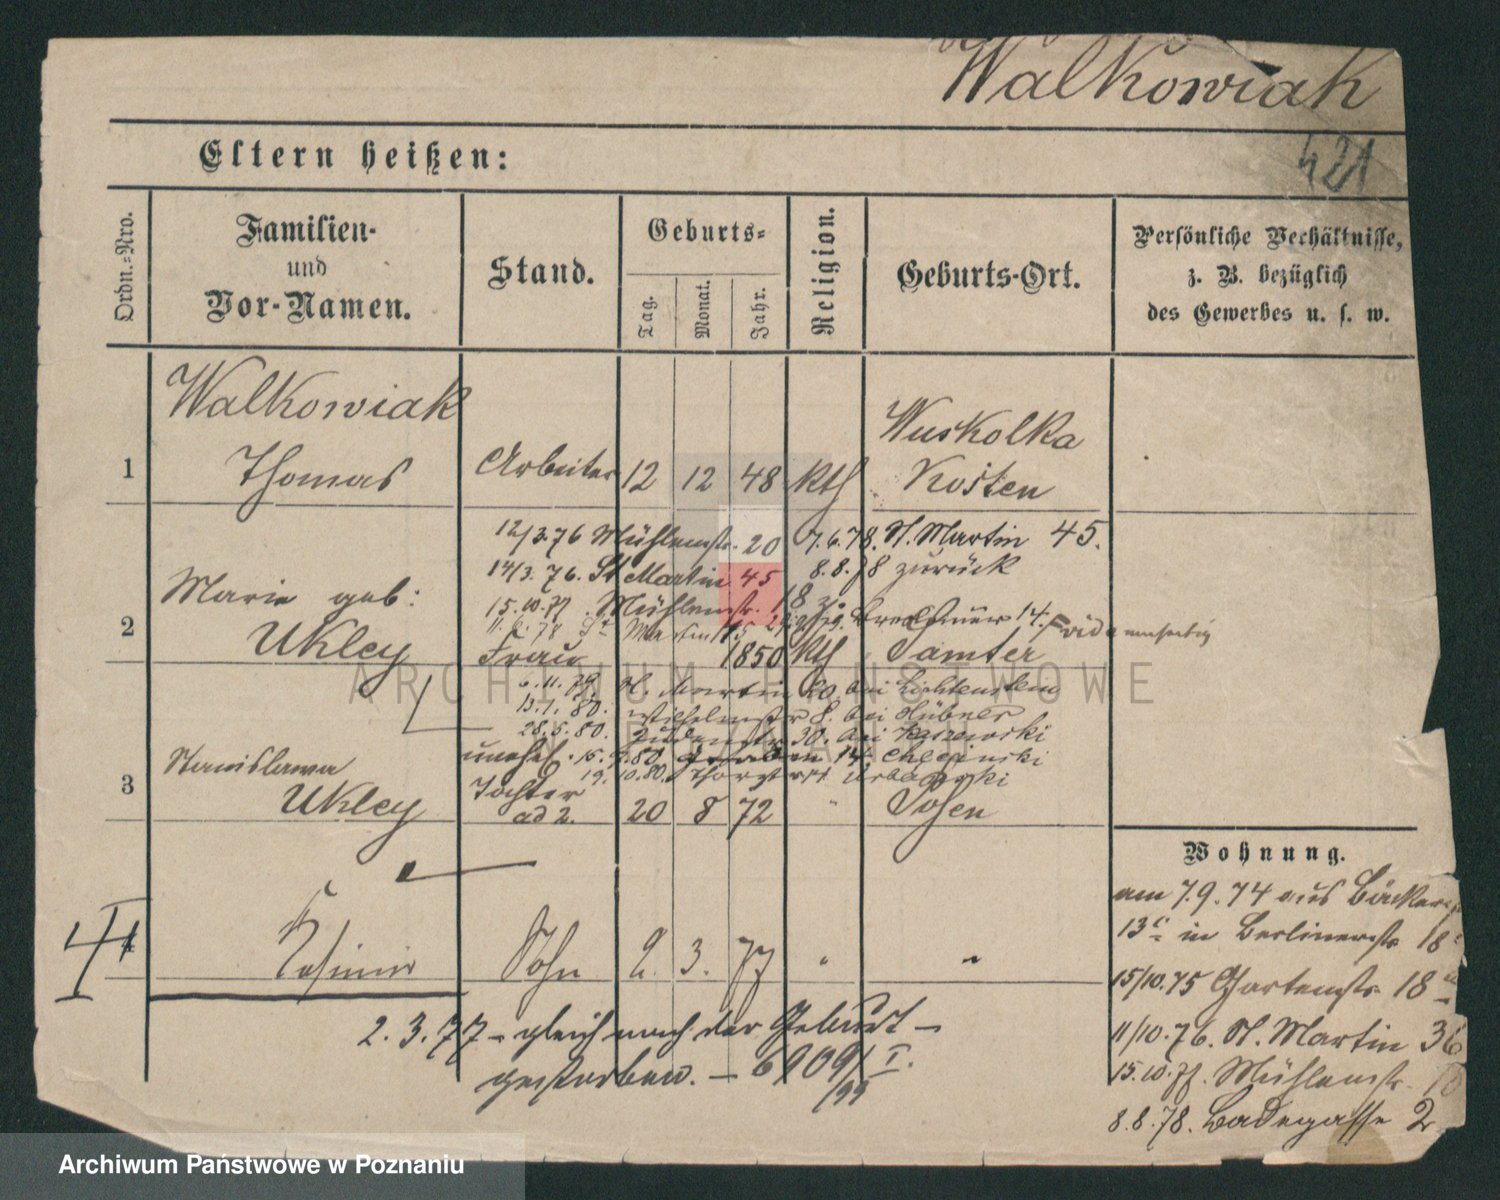 Walkowiak
421
Eltern heißen:
Ordn.-Nro.
Familien-
und
Vor-Namen.
Stand.
Geburts-
Tag.
Monat.
Jahr.
Religion.
Geburts-Ort.
Persönliche Verhältnisse,
z. B. bezüglich
des Gewerbes u. s. w.
Walkowiak
1 Thomas Arbeiter 12 12 48 kth Wuskolka
Kosten
12/3.76 Mühlenstr. 20 7.6.78. St. Martin 45.
14/3.76. St Martin 45 8.8.78 zurück
Marie geb:
15.10.77. Mühlenstr. 18
11.6.78 St Martin 45 14.
2 Ukley Frau 1850 kth Samter
6.11.79. St. Martin 20. bei Lichtenstein
13.1.80. Wilhelmstr 8. bei Hübner
28.5.80. 30. bei
Stanislawa unehel. 80 Graben 14
19.10.80.
3 Ukley Tochter
ad 2. 20 8 72 " Posen
Wohnung.
am 7.9.74 aus Bäckerstr
13 in Berlinerstr 18
15/10.75 Gartenstr 18
11/10.76. St. Martin 36
15.10.77. Mühlenstr.
8.8.78. Badegasse 2
4 Kasimir Sohn 2. 3. 77 " "
2.3.77 – gleich nach der Geburt –
gestorben. – 6909/I.
/99
ARCHIWUM PAŃSTWOWE
W POZNANIU
Archiwum Państwowe w Poznaniu